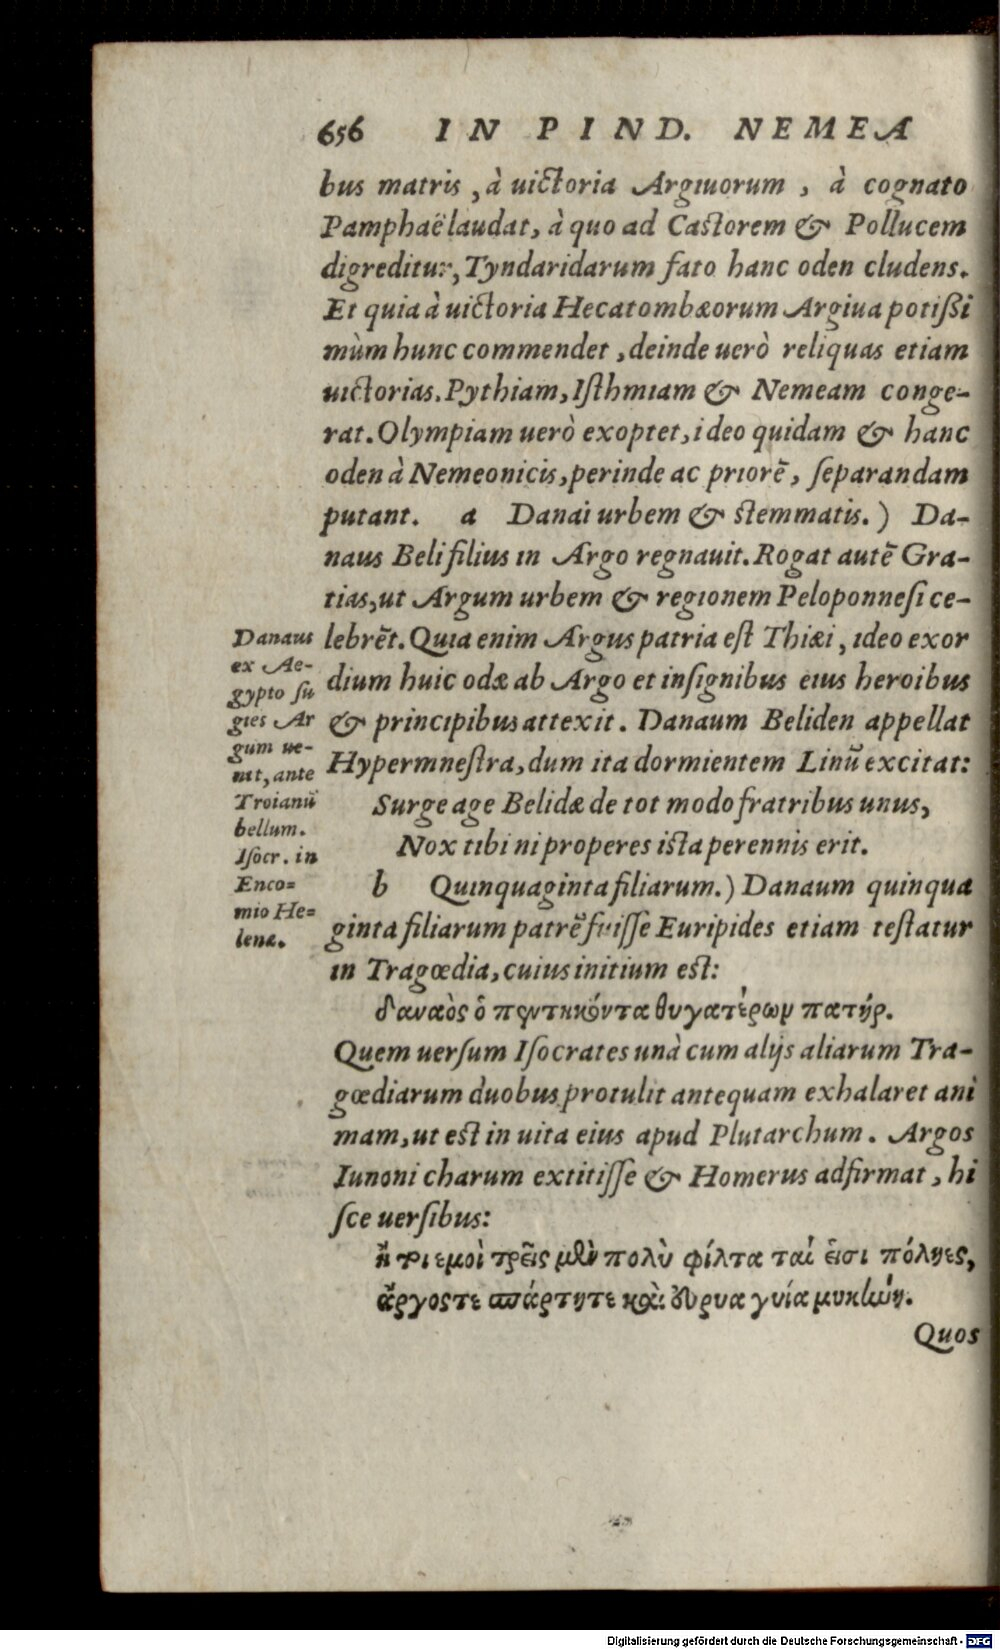 656 IN PIND. NEMEA
bus matris, à uictoria Argiuorum, à cognato
Pamphaë laudat, à quo ad Castorem & Pollucem
digreditur, Tyndaridarum fato hanc oden cludens.
Et quia à uictoria Hecatombæorum Argiua potißi
mùm hunc commendet, deinde uerò reliquas etiam
uictorias. Pythiam, Isthmiam & Nemeam conge-
rat. Olympiam uerò exoptet, ideo quidam & hanc
oden à Nemeonicis, perinde ac priorē, separandam
putant. a Danai urbem & stemmatis.) Da-
naus Beli filius in Argo regnauit. Rogat autē Gra-
tias, ut Argum urbem & regionem Peloponnesi ce-
lebrēt. Quia enim Argus patria est Thiæi, ideo exor
dium huic odæ ab Argo et insignibus eius heroibus
& principibus attexit. Danaum Beliden appellat
Hypermnestra, dum ita dormientem Linū excitat:
Surge age Belidæ de tot modo fratribus unus,
Nox tibi ni properes ista perennis erit.
b Quinquaginta filiarum.) Danaum quinqua
ginta filiarum patrē fuisse Euripides etiam testatur
in Tragœdia, cuius initium est:
δαναὸς ὁ πεντηκόντα θυγατέρων πατήρ.
Quem uersum Isocrates unà cum alijs aliarum Tra-
gœdiarum duobus protulit antequam exhalaret ani
mam, ut est in uita eius apud Plutarchum. Argos
Iunoni charum extitisse & Homerus adfirmat, hi
sce uersibus:
ἤ τοι ἐμοὶ τρεῖς μὲν πολὺ φίλταται εἰσι πόληες,
ἄργοστε σπάρτητε καὶ εὐρυαγυία μυκήνη.
Quos
Danaus
ex Ae-
gypto fu
giens Ar
gum ue-
nit, ante
Troianū
bellum.
Isocr. in
Enco=
mio He=
lenæ.
Digitalisierung gefördert durch die Deutsche Forschungsgemeinschaft - DFG